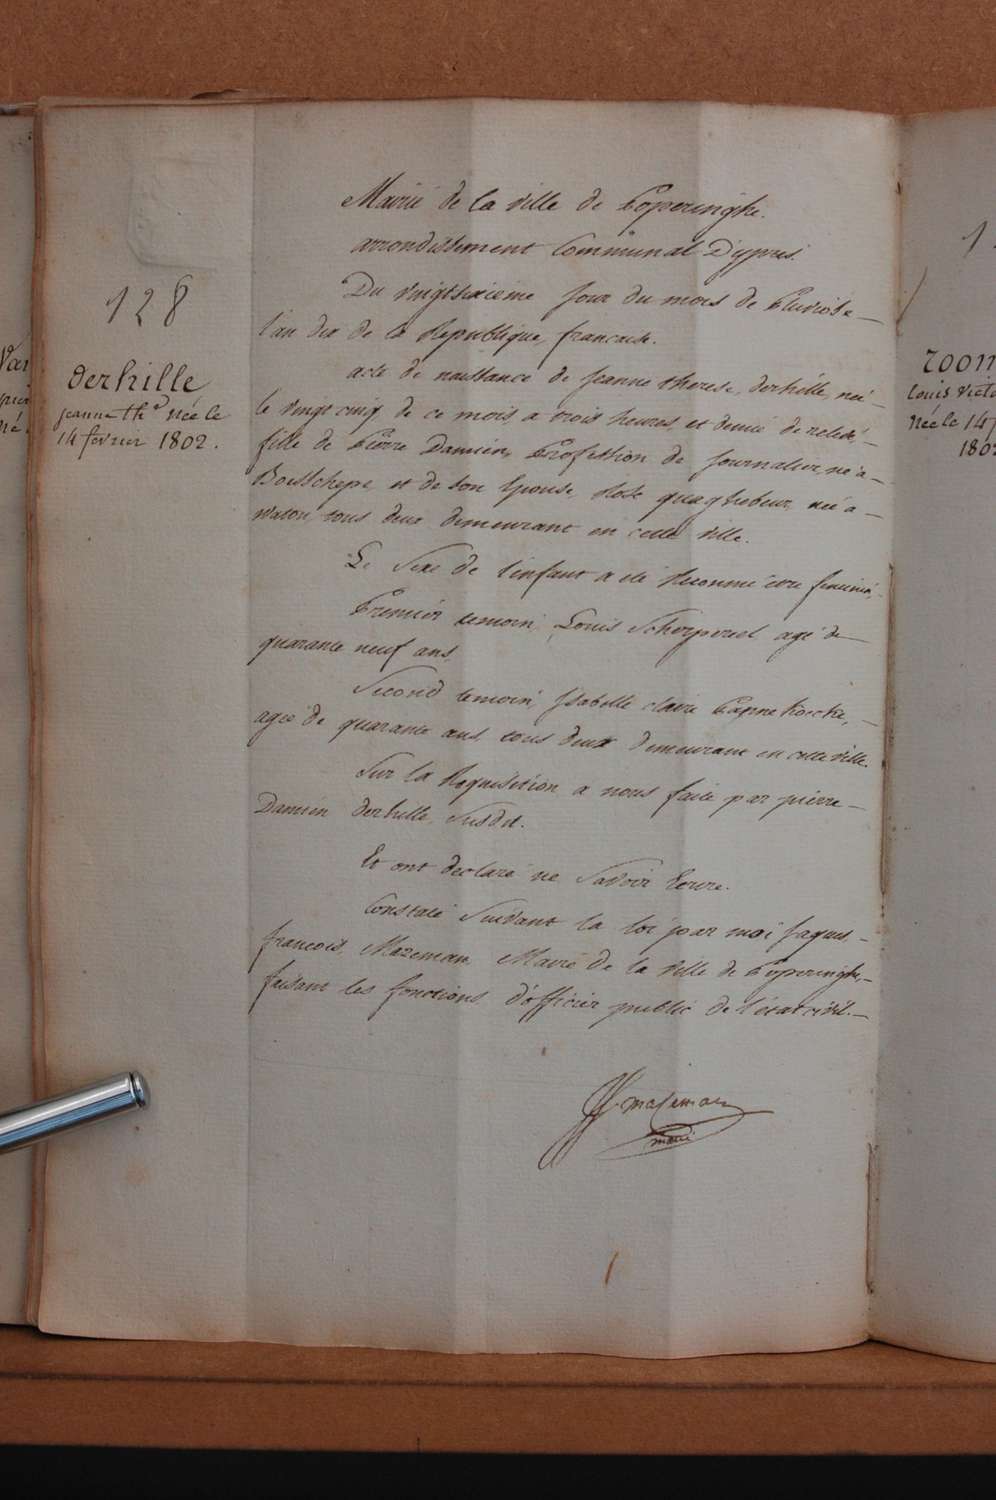 128
derhille
jeanne th.e née le
14 février 1802.
Mairie de la ville de Poperinghe.
arrondissement Communal D'ypres.
Du vingtsixieme jour du mois de Pluviose —
l'an dix de la Republique francaise.
acte de naissance de Jeanne therese, derhille, née —
le vingt cinq de ce mois, a trois heures, et demie de relevé, —
fille de Pierre Damien, Profession de Journalier, né a —
Boesschepe, et de son Epouse, Rose quaghebeur, née a —
Waton, tous deux demeurant en cette ville.
Le Sexe de l'enfant a été Reconnu être feminin, -
Premier temoin, Louis Scherpereel agé de —
quarante neuf ans,
Second temoin, Isabelle claire —
agée de quarante ans, tous deux demeurant en cette ville.
Sur la Requisition a nous faite par pierre —
Damien derhille, Susdit.
Et ont declaré ne Savoir Ecrire.
Constaté Suivant la loi par moi Jaques, -
francois, Mazeman, Maire de la ville de Poperinghe, -
faisant les fonctions, d'officier public de l'état civil. —
mazeman
maire
Van
né
1
roon
Louis Victo
Née le 14 f
1802